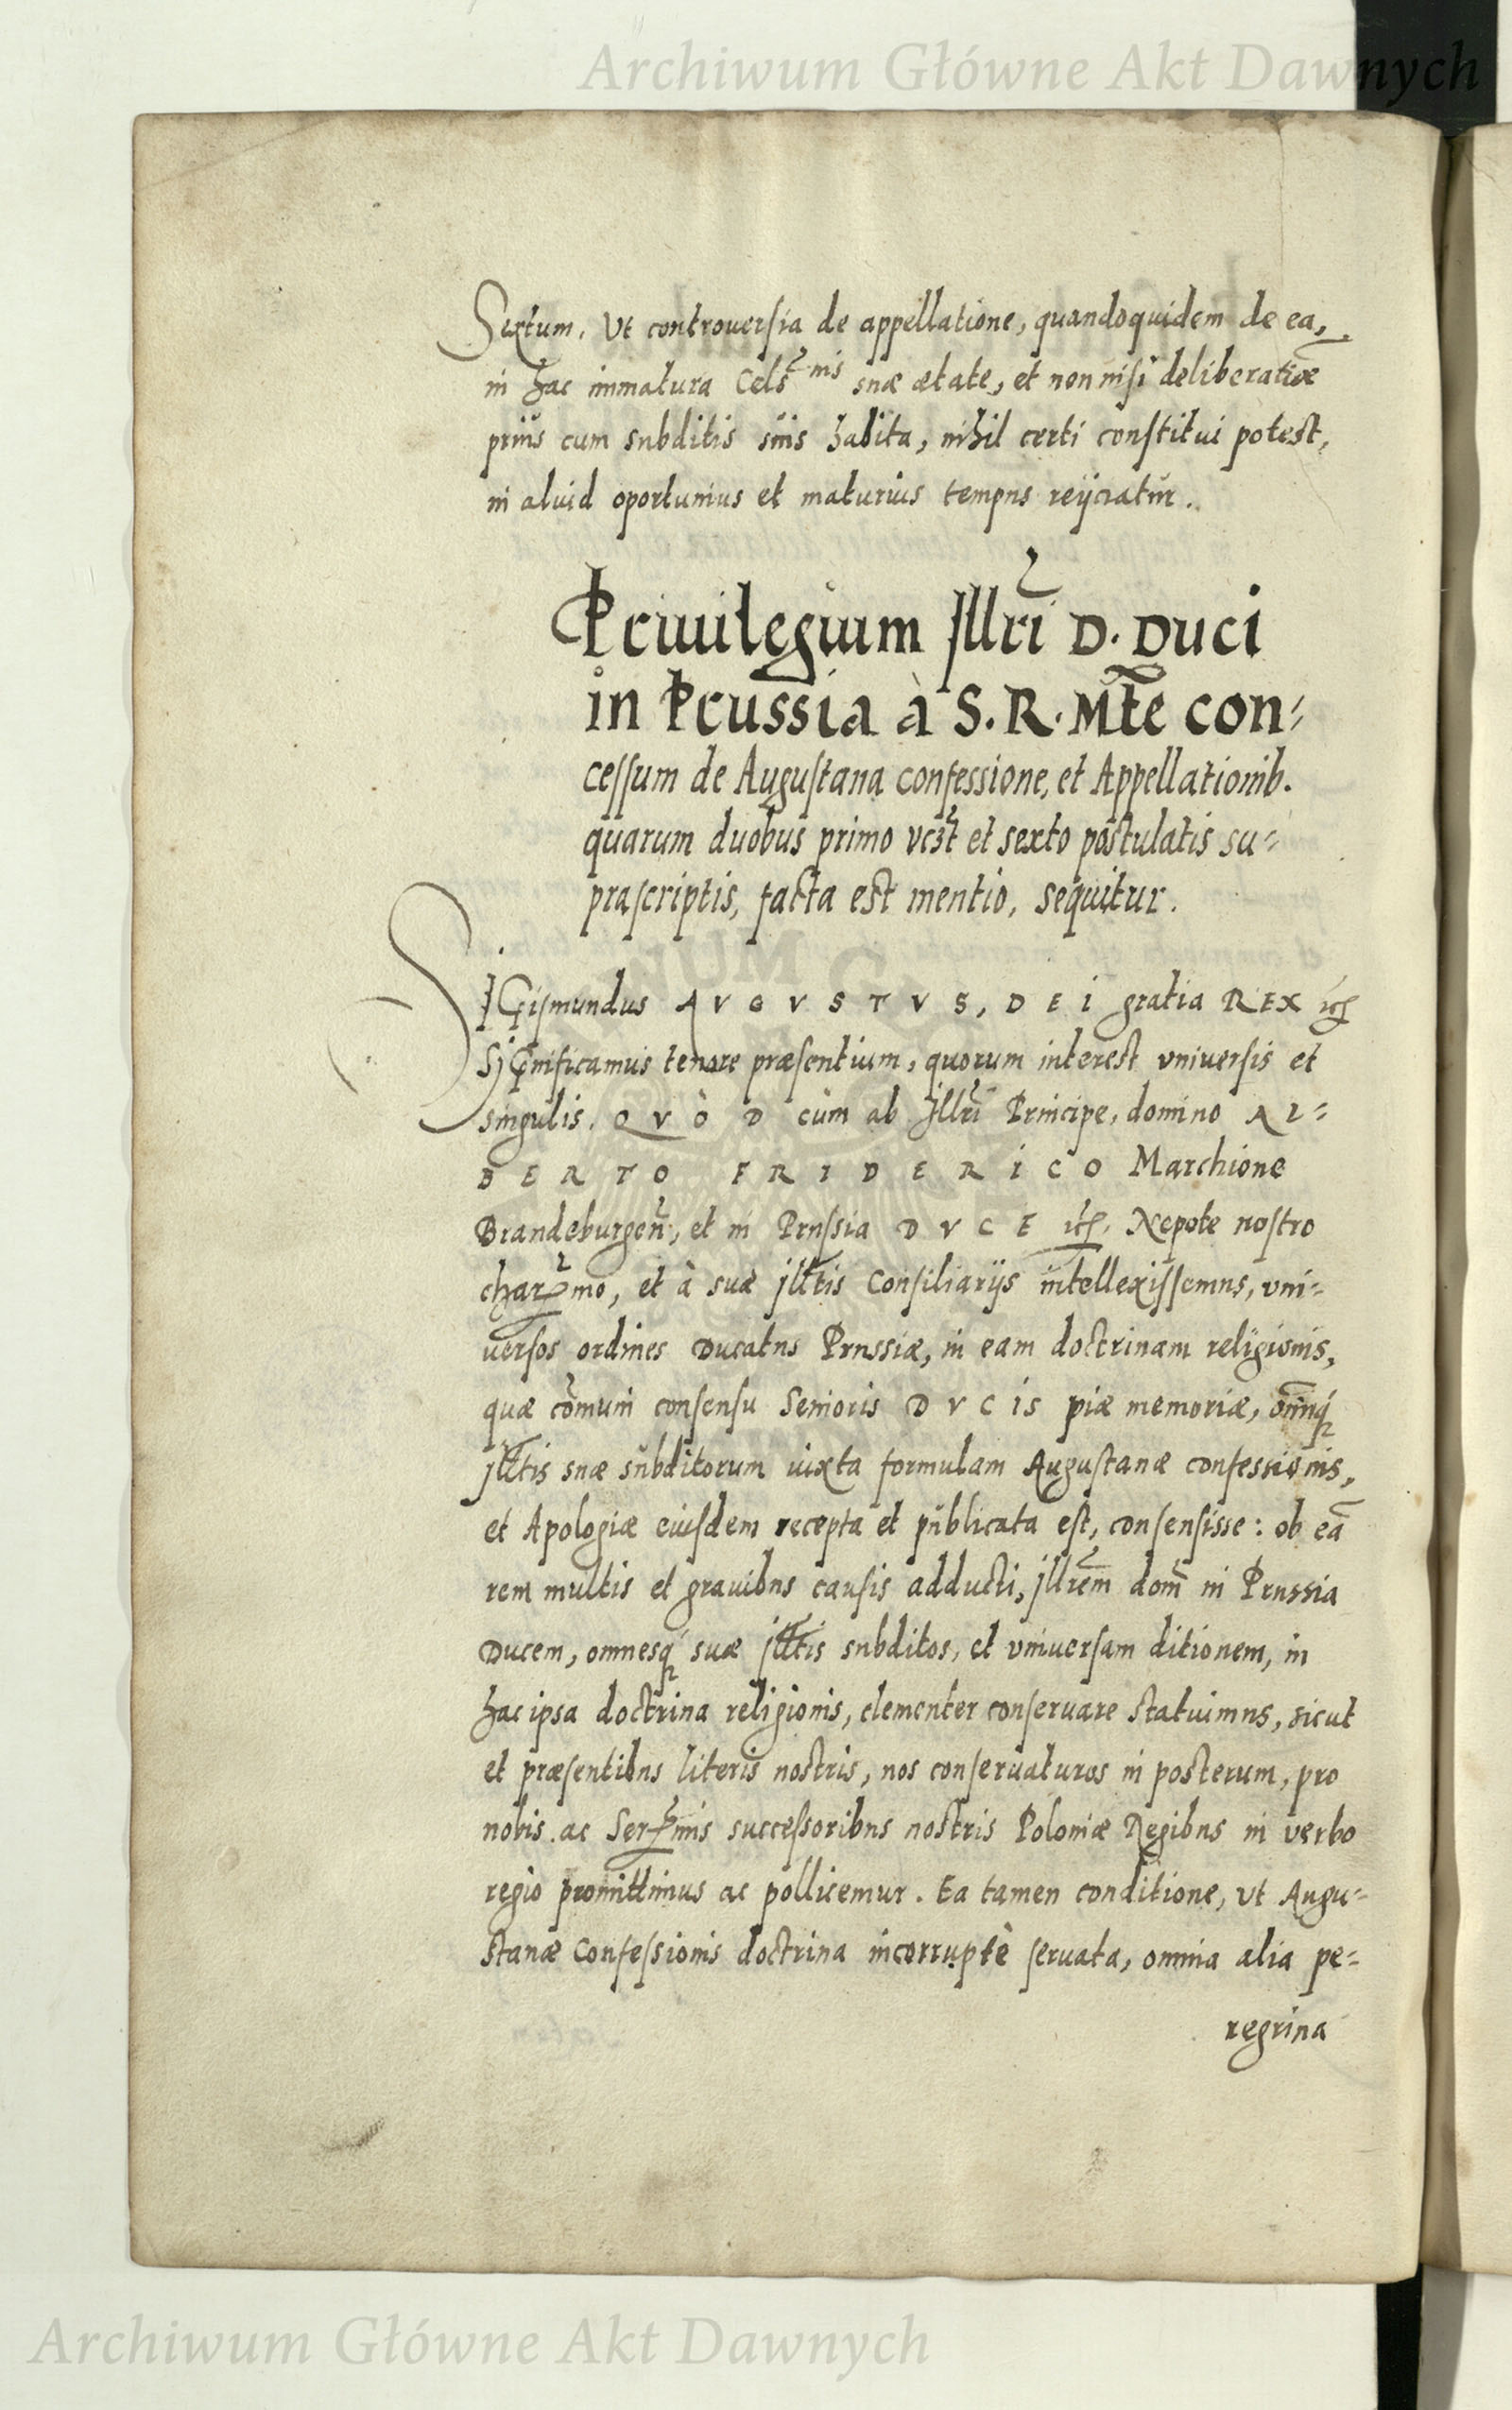 Archiwum Główne Akt Dawnych
Sextum. Ut controuersia de appellatione, quandoquidem de ea,
in hac immatura Cels^nis suæ ætate, et non nisi deliberatiõe
priùs cum subditis suis habita, nihil certi constitui potest,
in aliud oportunius et maturius tempus reijciatur.
Priuilegium Jllri D. Duci
in Prussia à S. R. Mte con=
cessum de Augustana confessione, et Appellationib.
quarum duobus primo vczt et sexto postulatis su=
prascriptis, facta est mentio, sequitur.
SIGismundus AVGVSTVS, DEI gratia REX etc
SiGnificamus tenore præsentium, quorum interest vniuersis et
singulis. QVÒD cùm ab Jllri Principe, domino AL=
BERTO FRIDERICO Marchione
Brandeburgeñ, et in Prussia DVCE etc. Nepote nostro
charmo, et à suæ jlltis Consiliarijs intellexissemus, vni=
uersos ordines Ducatus Prussiæ, in eam doctrinam religionis,
quæ cõmuni consensu Senioris DVCIS piæ memoriæ, omniq́
jlltis suæ subditorum iuxta formulam Augustanæ confessionis,
et Apologiæ eiusdem recepta et publicata est, consensisse: ob eã
rem multis et grauibus causis adducti, jllrem dom̃ in Prussia
Ducem, omnesq́ suæ jlltis subditos, et vniuersam ditionem, in
hac ipsa doctrina religionis, clementer conseruare statuimus, sicut
et præsentibus literis nostris, nos conseruaturos in posterum, pro
nobis ac Sermis successoribus nostris Poloniæ Regibus in verbo
regio promittimus ac pollicemur. Ea tamen conditione, vt Augu=
stanæ Confessionis doctrina incorruptè seruata, omnia alia pe=
regrina
Archiwum Główne Akt Dawnych